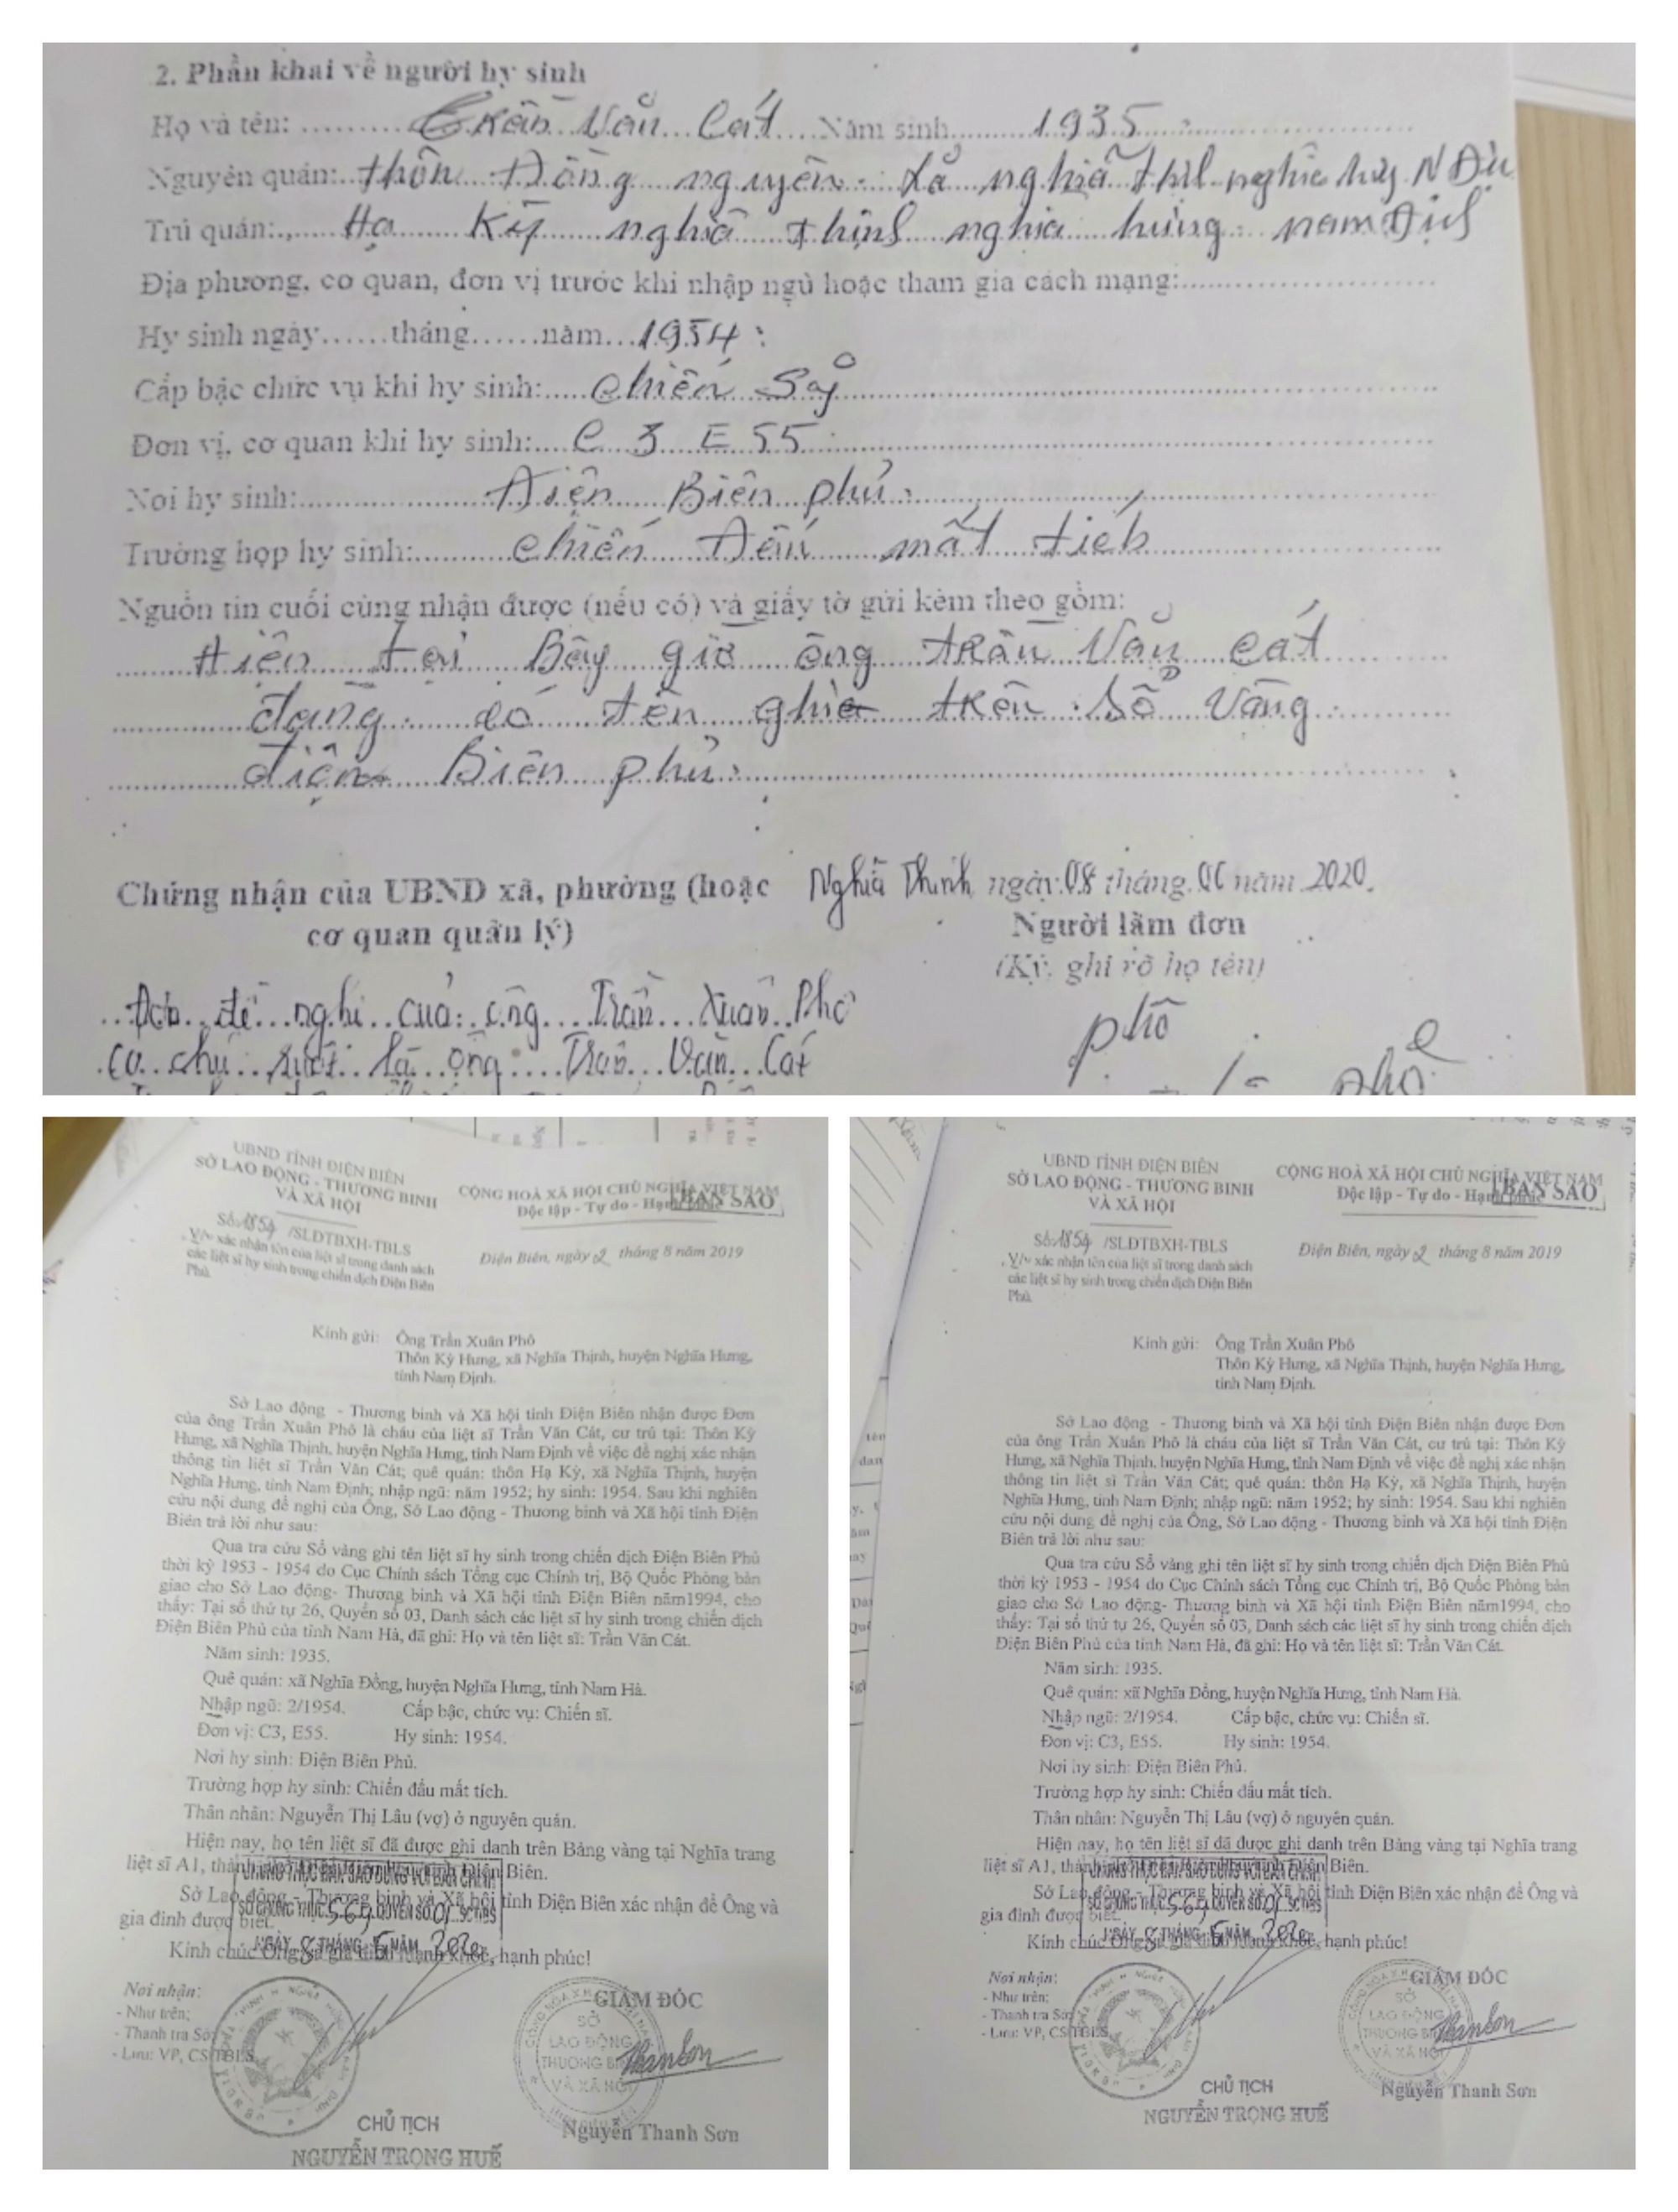 2. Phần khai về người hy sinh
Họ và tên: Trần Văn Cát Năm sinh 1935
Nguyên quán: thôn Đồng nguyên xã nghĩa thịl nghĩa hưg N Địn
Trú quán: Hạ Kỳ nghĩa thịnh nghia hưng nam Định
Địa phương, cơ quan, đơn vị trước khi nhập ngũ hoặc tham gia cách mạng:
Hy sinh ngày......tháng......năm...1954
Cấp bậc chức vụ khi hy sinh: chiến sỹ
Đơn vị, cơ quan khi hy sinh: C 3 E 55
Nơi hy sinh: Điện Biên phủ
Trường hợp hy sinh: chiến đấu mất tích
Nguồn tin cuối cùng nhận được (nếu có) và giấy tờ gửi kèm theo gồm:
Hiện tại Bây giờ ông trần Văn cát
đang có tên ghi trên Sổ Vàng
điện Biên phủ
Chứng nhận của UBND xã, phường (hoặc
cơ quan quản lý)
Nghĩa Thịnh ngày 08 tháng 06 năm 2020.
Người làm đơn
(Ký, ghi rõ họ tên)
Đơn đề nghị của ông Trần Xuân Phô
Có chú ruột là ông Trần Văn Cát
phô
UBND TỈNH ĐIỆN BIÊN
SỞ LAO ĐỘNG - THƯƠNG BINH
VÀ XÃ HỘI
CỘNG HOÀ XÃ HỘI CHỦ NGHĨA VIỆT NAM
Độc lập - Tự do - Hạnh phúc
BẢN SAO
Số: 1854 /SLĐTBXH-TBLS
V/v xác nhận tên của liệt sĩ trong danh sách
các liệt sĩ hy sinh trong chiến dịch Điện Biên
Phủ.
Điện Biên, ngày 2 tháng 8 năm 2019
Kính gửi: Ông Trần Xuân Phô
Thôn Kỳ Hưng, xã Nghĩa Thịnh, huyện Nghĩa Hưng,
tỉnh Nam Định.
Sở Lao động - Thương binh và Xã hội tỉnh Điện Biên nhận được Đơn
của ông Trần Xuân Phô là cháu của liệt sĩ Trần Văn Cát, cư trú tại: Thôn Kỳ
Hưng, xã Nghĩa Thịnh, huyện Nghĩa Hưng, tỉnh Nam Định về việc đề nghị xác nhận
thông tin liệt sĩ Trần Văn Cát; quê quán: thôn Hạ Kỳ, xã Nghĩa Thịnh, huyện
Nghĩa Hưng, tỉnh Nam Định; nhập ngũ: năm 1952; hy sinh: 1954. Sau khi nghiên
cứu nội dung đề nghị của Ông, Sở Lao động - Thương binh và Xã hội tỉnh Điện
Biên trả lời như sau:
Qua tra cứu Sổ vàng ghi tên liệt sĩ hy sinh trong chiến dịch Điện Biên Phủ
thời kỳ 1953 - 1954 do Cục Chính sách Tổng cục Chính trị, Bộ Quốc Phòng bàn
giao cho Sở Lao động- Thương binh và Xã hội tỉnh Điện Biên năm1994, cho
thấy: Tại số thứ tự 26, Quyển số 03, Danh sách các liệt sĩ hy sinh trong chiến dịch
Điện Biên Phủ của tỉnh Nam Hà, đã ghi: Họ và tên liệt sĩ: Trần Văn Cát.
Năm sinh: 1935.
Quê quán: xã Nghĩa Đồng, huyện Nghĩa Hưng, tỉnh Nam Hà.
Nhập ngũ: 2/1954. Cấp bậc, chức vụ: Chiến sĩ.
Đơn vị: C3, E55. Hy sinh: 1954.
Nơi hy sinh: Điện Biên Phủ.
Trường hợp hy sinh: Chiến đấu mất tích.
Thân nhân: Nguyễn Thị Lâu (vợ) ở nguyên quán.
Hiện nay, họ tên liệt sĩ đã được ghi danh trên Bảng vàng tại Nghĩa trang
liệt sĩ A1, Điện Biên.
Sở Lao động - Thương binh và Xã hội tỉnh Điện Biên xác nhận để Ông và
gia đình được biết.
Kính chúc Ông và gia đình mạnh khỏe, hạnh phúc!
CHỨNG THỰC BẢN SAO ĐÚNG VỚI BẢN CHÍNH
SỐ CHỨNG THỰC 569 QUYỂN SỐ 01 SCT/BS
NGÀY 8 THÁNG 6 NĂM 2020
Nơi nhận:
- Như trên;
- Thanh tra Sở;
- Lưu: VP, CSTBLS.
GIÁM ĐỐC
SỞ
LAO ĐỘNG
THƯƠNG BINH
VÀ XÃ HỘI
CHỦ TỊCH
NGUYỄN TRỌNG HUẾ
Nguyễn Thanh Sơn
UBND TỈNH ĐIỆN BIÊN
SỞ LAO ĐỘNG - THƯƠNG BINH
VÀ XÃ HỘI
CỘNG HOÀ XÃ HỘI CHỦ NGHĨA VIỆT NAM
Độc lập - Tự do - Hạnh phúc
BẢN SAO
Số: 1854 /SLĐTBXH-TBLS
V/v xác nhận tên của liệt sĩ trong danh sách
các liệt sĩ hy sinh trong chiến dịch Điện Biên
Phủ.
Điện Biên, ngày 2 tháng 8 năm 2019
Kính gửi: Ông Trần Xuân Phô
Thôn Kỳ Hưng, xã Nghĩa Thịnh, huyện Nghĩa Hưng,
tỉnh Nam Định.
Sở Lao động - Thương binh và Xã hội tỉnh Điện Biên nhận được Đơn
của ông Trần Xuân Phô là cháu của liệt sĩ Trần Văn Cát, cư trú tại: Thôn Kỳ
Hưng, xã Nghĩa Thịnh, huyện Nghĩa Hưng, tỉnh Nam Định về việc đề nghị xác nhận
thông tin liệt sĩ Trần Văn Cát; quê quán: thôn Hạ Kỳ, xã Nghĩa Thịnh, huyện
Nghĩa Hưng, tỉnh Nam Định; nhập ngũ: năm 1952; hy sinh: 1954. Sau khi nghiên
cứu nội dung đề nghị của Ông, Sở Lao động - Thương binh và Xã hội tỉnh Điện
Biên trả lời như sau:
Qua tra cứu Sổ vàng ghi tên liệt sĩ hy sinh trong chiến dịch Điện Biên Phủ
thời kỳ 1953 - 1954 do Cục Chính sách Tổng cục Chính trị, Bộ Quốc Phòng bàn
giao cho Sở Lao động- Thương binh và Xã hội tỉnh Điện Biên năm1994, cho
thấy: Tại số thứ tự 26, Quyển số 03, Danh sách các liệt sĩ hy sinh trong chiến dịch
Điện Biên Phủ của tỉnh Nam Hà, đã ghi: Họ và tên liệt sĩ: Trần Văn Cát.
Năm sinh: 1935.
Quê quán: xã Nghĩa Đồng, huyện Nghĩa Hưng, tỉnh Nam Hà.
Nhập ngũ: 2/1954. Cấp bậc, chức vụ: Chiến sĩ.
Đơn vị: C3, E55. Hy sinh: 1954.
Nơi hy sinh: Điện Biên Phủ.
Trường hợp hy sinh: Chiến đấu mất tích.
Thân nhân: Nguyễn Thị Lâu (vợ) ở nguyên quán.
Hiện nay, họ tên liệt sĩ đã được ghi danh trên Bảng vàng tại Nghĩa trang
liệt sĩ A1, Điện Biên.
Sở Lao động - Thương binh và Xã hội tỉnh Điện Biên xác nhận để Ông và
gia đình được biết.
Kính chúc Ông và gia đình mạnh khỏe, hạnh phúc!
CHỨNG THỰC BẢN SAO ĐÚNG VỚI BẢN CHÍNH
SỐ CHỨNG THỰC 569 QUYỂN SỐ 01 SCT/BS
NGÀY 8 THÁNG 6 NĂM 2020
Nơi nhận:
- Như trên;
- Thanh tra Sở;
- Lưu: VP, CSTBLS.
GIÁM ĐỐC
SỞ
LAO ĐỘNG
THƯƠNG BINH
VÀ XÃ HỘI
CHỦ TỊCH
NGUYỄN TRỌNG HUẾ
Nguyễn Thanh Sơn